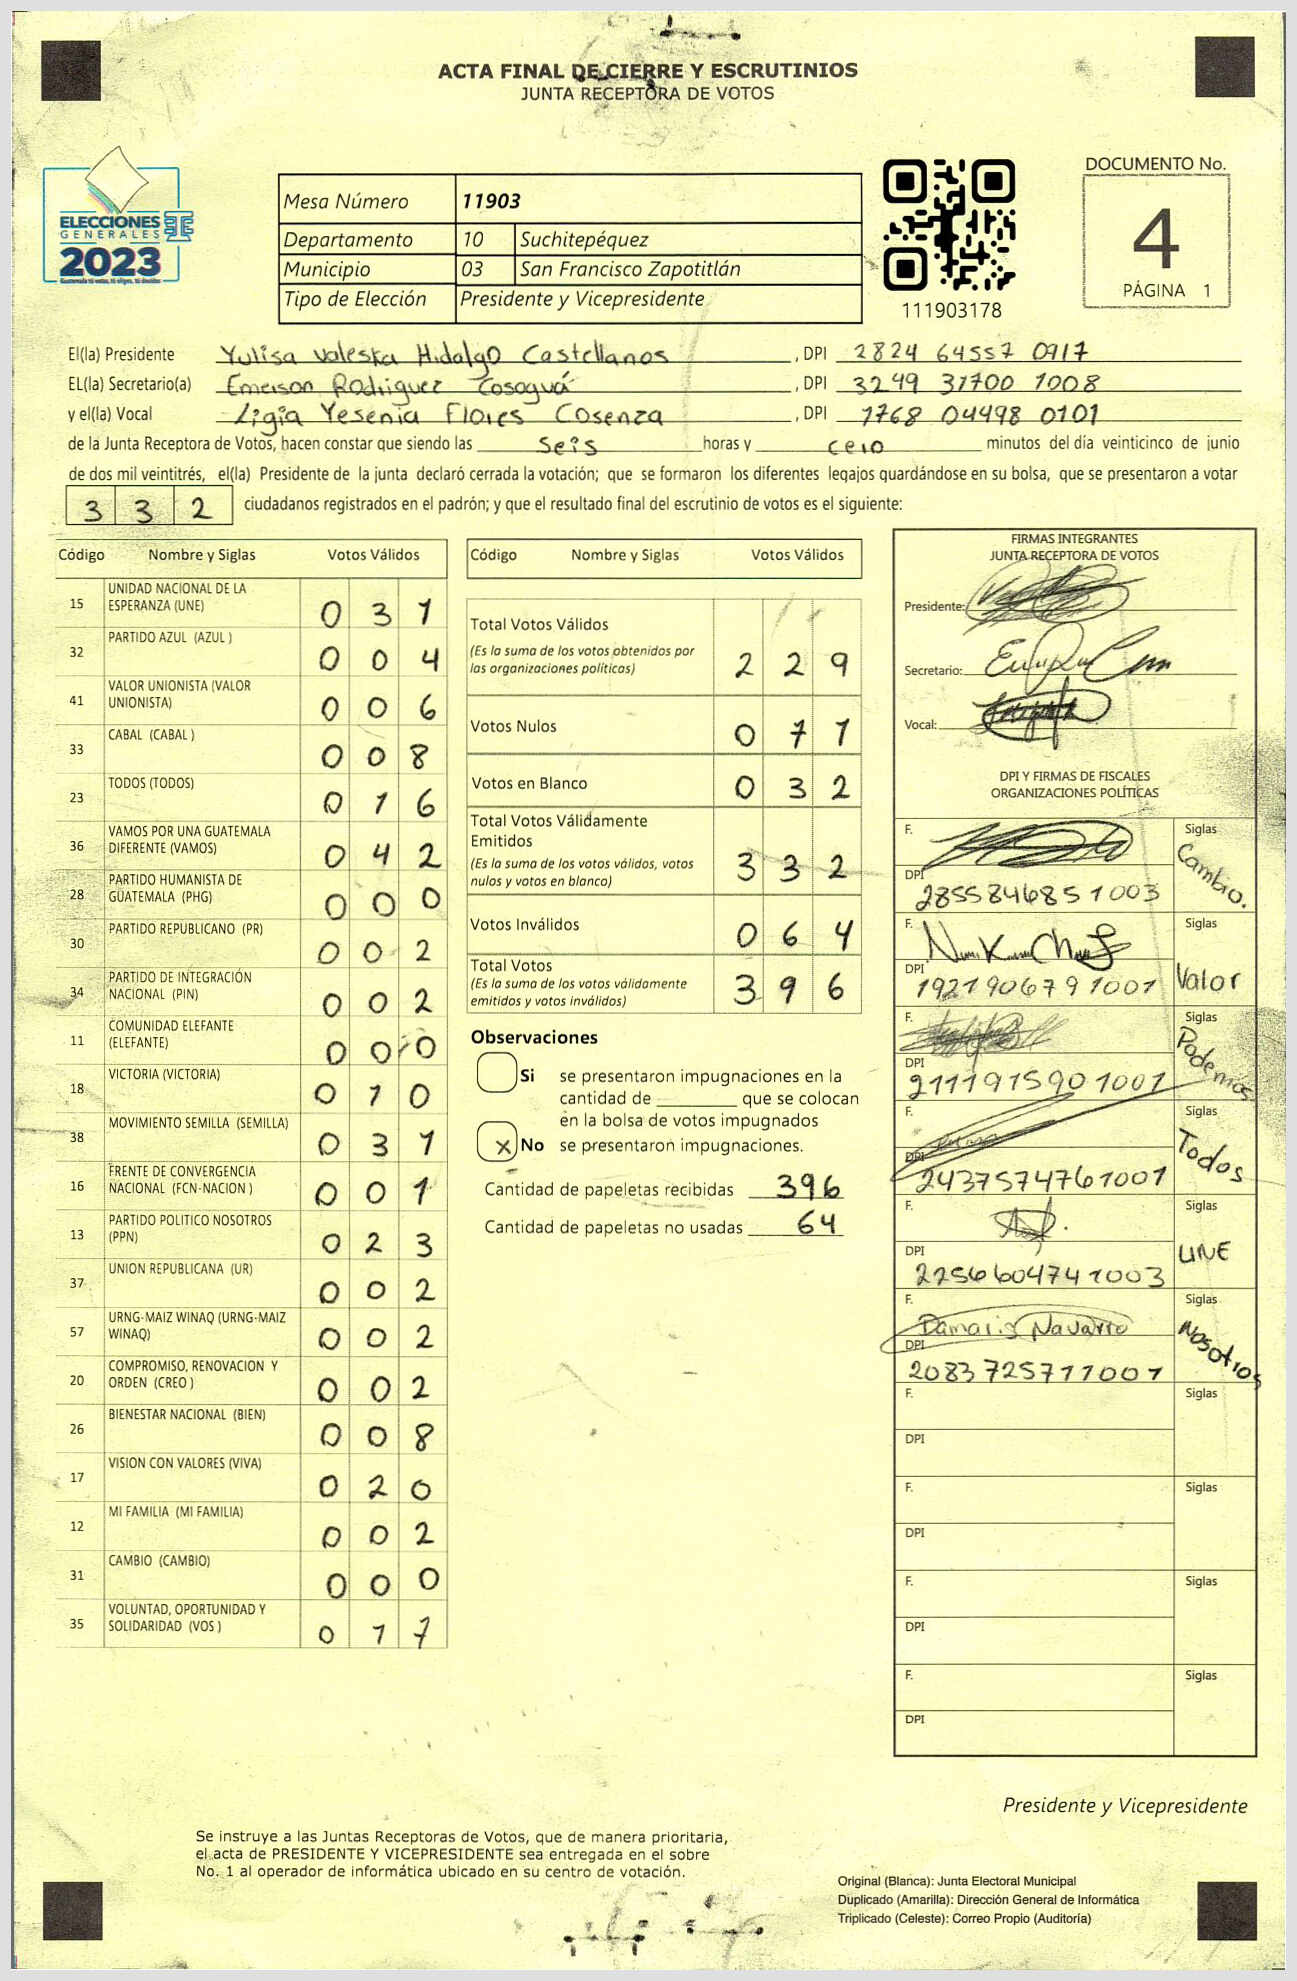 ACTA FINAL DE CIERRE Y ESCRUTINIOS
JUNTA RECEPTORA DE VOTOS
ELECCIONES
GENERALES
2023
Mesa Número 11903
Departamento 10 Suchitepéquez
Municipio 03 San Francisco Zapotitlán
Tipo de Elección Presidente y Vicepresidente
111903178
DOCUMENTO No.
4
PÁGINA 1
El(la) Presidente Yulisa Valeska Hidalgo Castellanos , DPI 2824 64557 0917
EL(la) Secretario(a) Emerson Rodriguez Cosoguá , DPI 3249 31700 1008
y el(la) Vocal Ligia Yesenia Flores Cosenza , DPI 1768 04498 0101
de la Junta Receptora de Votos, hacen constar que siendo las seis horas y cero minutos del día veinticinco de junio
de dos mil veintitrés, el(la) Presidente de la junta declaró cerrada la votación; que se formaron los diferentes legajos guardándose en su bolsa, que se presentaron a votar
332 ciudadanos registrados en el padrón; y que el resultado final del escrutinio de votos es el siguiente:
Código Nombre y Siglas Votos Válidos
15 UNIDAD NACIONAL DE LA ESPERANZA (UNE) 031
32 PARTIDO AZUL (AZUL ) 004
41 VALOR UNIONISTA (VALOR UNIONISTA) 006
33 CABAL (CABAL ) 008
23 TODOS (TODOS) 016
36 VAMOS POR UNA GUATEMALA DIFERENTE (VAMOS) 042
28 PARTIDO HUMANISTA DE GUATEMALA (PHG) 000
30 PARTIDO REPUBLICANO (PR) 002
34 PARTIDO DE INTEGRACIÓN NACIONAL (PIN) 002
11 COMUNIDAD ELEFANTE (ELEFANTE) 000
18 VICTORIA (VICTORIA) 010
38 MOVIMIENTO SEMILLA (SEMILLA) 031
16 FRENTE DE CONVERGENCIA NACIONAL (FCN-NACION ) 001
13 PARTIDO POLITICO NOSOTROS (PPN) 023
37 UNION REPUBLICANA (UR) 002
57 URNG-MAIZ WINAQ (URNG-MAIZ WINAQ) 002
20 COMPROMISO, RENOVACION Y ORDEN (CREO ) 002
26 BIENESTAR NACIONAL (BIEN) 008
17 VISION CON VALORES (VIVA) 020
12 MI FAMILIA (MI FAMILIA) 002
31 CAMBIO (CAMBIO) 000
35 VOLUNTAD, OPORTUNIDAD Y SOLIDARIDAD (VOS ) 017
Código Nombre y Siglas Votos Válidos
Total Votos Válidos
(Es la suma de los votos obtenidos por las organizaciones políticas) 229
Votos Nulos 071
Votos en Blanco 032
Total Votos Válidamente Emitidos
(Es la suma de los votos válidos, votos nulos y votos en blanco) 332
Votos Inválidos 064
Total Votos
(Es la suma de los votos válidamente emitidos y votos inválidos) 396
Observaciones
Si se presentaron impugnaciones en la
cantidad de ________ que se colocan
en la bolsa de votos impugnados
x No se presentaron impugnaciones.
Cantidad de papeletas recibidas 396
Cantidad de papeletas no usadas 64
FIRMAS INTEGRANTES
JUNTA RECEPTORA DE VOTOS
Presidente:
Secretario:
Vocal:
DPI Y FIRMAS DE FISCALES
ORGANIZACIONES POLÍTICAS
F. Siglas
DPI 2855846851003 Cambio.
F. Siglas
DPI 1921906791001 Valor
F. Siglas
DPI 2111915901001 Podemos
F. Siglas
DPI 2437574761001 Todos
F. Siglas
DPI 2256604741003 UNE
F. Damaris Navarro Siglas
DPI 2083725711001 Nosotros
F. Siglas
DPI
F. Siglas
DPI
F. Siglas
DPI
F. Siglas
DPI
Presidente y Vicepresidente
Se instruye a las Juntas Receptoras de Votos, que de manera prioritaria,
el acta de PRESIDENTE Y VICEPRESIDENTE sea entregada en el sobre
No. 1 al operador de informática ubicado en su centro de votación.
Original (Blanca): Junta Electoral Municipal
Duplicado (Amarilla): Dirección General de Informática
Triplicado (Celeste): Correo Propio (Auditoría)